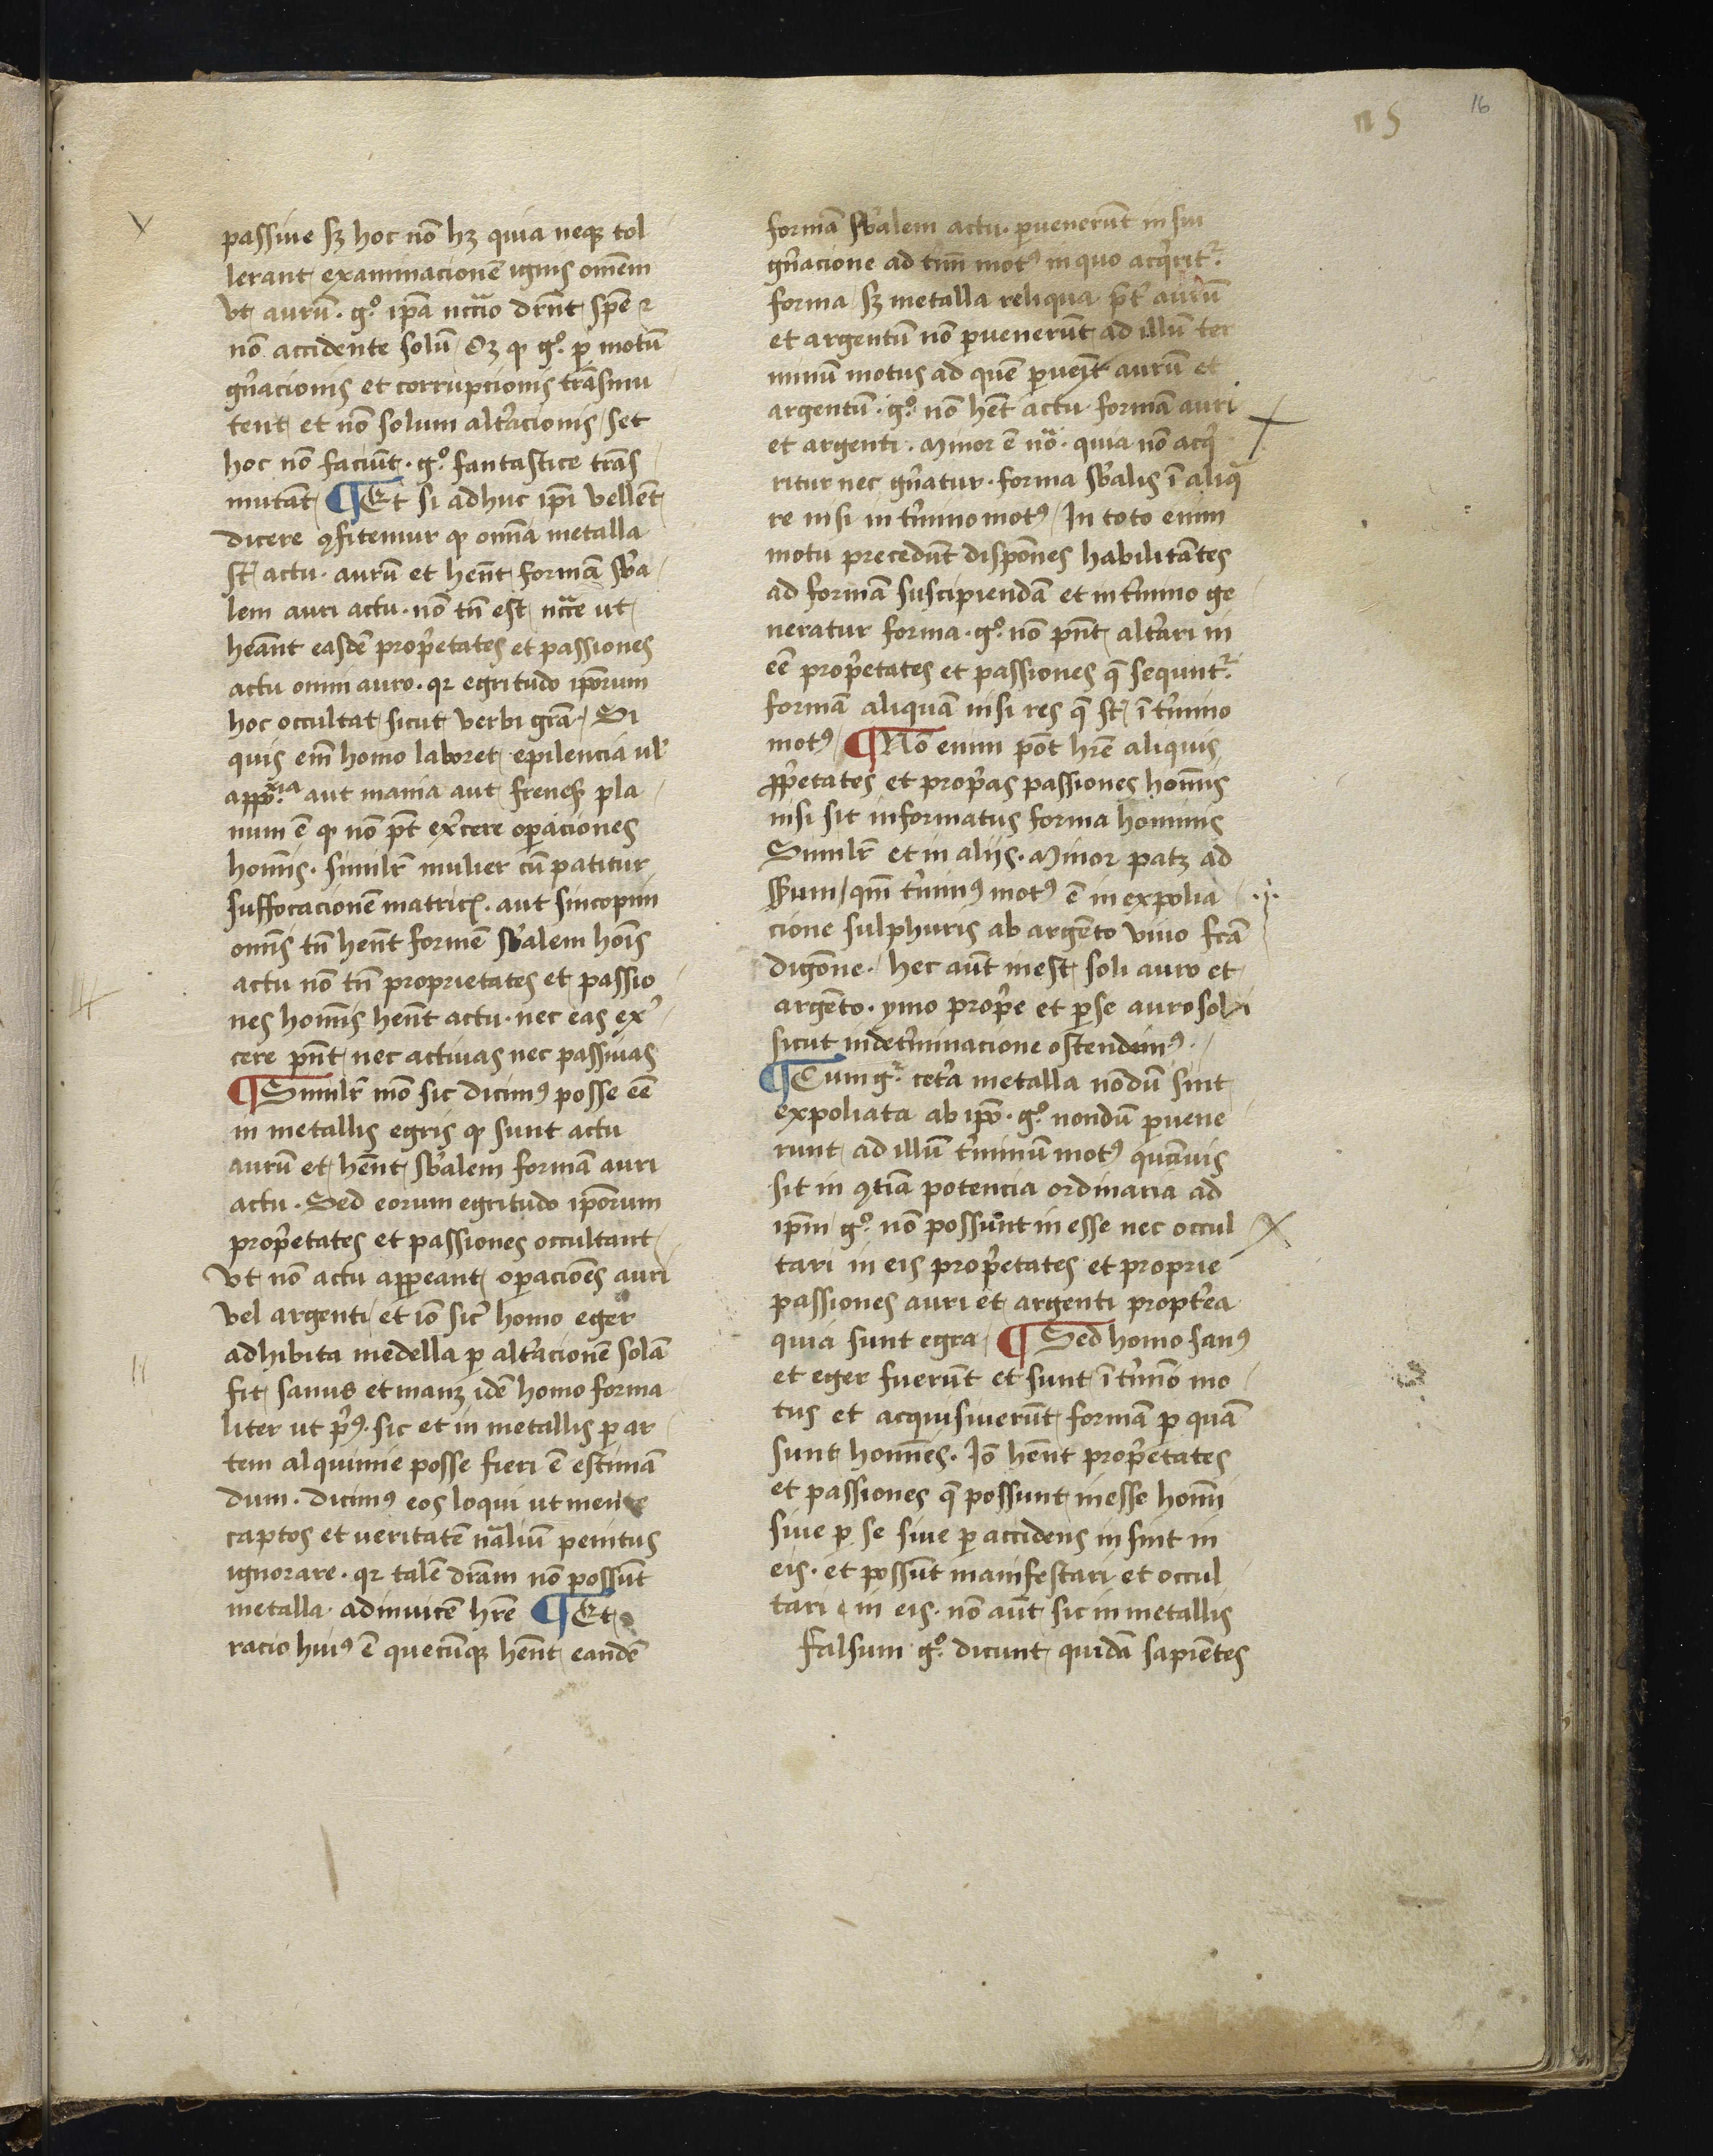 16
n 5
passiue sʒ hoc nō hʒ quia neqʒ tol
lerant examinacionē ignis omēm
vt aurū. gͦ. ip̄a nccͣio drn̄t spē ⁊
nō accidente solū Oʒ ꝙ gͦ. ꝑ motū
gn̄acionis et corrupcionis trāsmu
tent et nō solum alt̄acionis set
hoc nō faciūt. gͦ. fantastice trās
mutāt ¶ Et si adhuc ip̄i vellēt
dicere ꝯfitemur ꝙ om̄a metalla
st̄ actu. aurū et hēnt formā sb̄a
lem auri actu. nō tn̄ est nccͣe ut
heānt easdē prop̄etates et passiones
actu omni auro. qꝛ egritudo ip̄orum
hoc occultat sicut verbi grā. Si
quis em̄ homo laboret epilencia ul̄
aut mania aut pla
num ē ꝙ nō pt̄ ex̄cere oꝑaciones
homīs. simil̄r mulier cū patitur
suffocacionē matricꝭ. aut sincopim
om̄s tn̄ hēnt formē sb̄alem hoīs
actu nō tn̄ proprietates et passio
nes homīs hēnt actu. nec eas ex̄
cere pn̄t nec actiuas nec passiuas
¶ Simil̄r mō sic dicimꝰ posse eē
in metallis egris ꝙ sunt actu
aurū et hēnt sb̄alem formā auri
actu. Sed eorum egritudo ip̄orum
prop̄etates et passiones occultant
vt nō actu apꝑeant oꝑacioēs auri
vel argenti et iō sic̄ homo eger
adhibita medella ꝑ alt̄acionē solā
fit sanus et manʒ idē homo forma
liter ut pⁱꝰ. sic et in metallis ꝑ ar
tem alquimie posse fieri ē estimā
dum. dicimꝰ eos loqui ut mente
captos et veritatē nāliū penitus
ignorare. qꝛ talē dr̄am nō possūt
metalla adinuicē hr̄e ¶ Et
racio huiꝰ ē quecūqʒ hēnt eandē
formā sb̄alem actu. ꝑuenerūt in sui
gn̄acione ad t̄mī motꝰ in quo acqⁱrit᷑.
forma sʒ metalla reliqua pt̄ aurū
et argentū nō ꝑuenerūt ad illū ter
minū motus ad quē ꝑueīt aurū et
argentū. gͦ. nō hēt actu formā auri
et argenti. Minor ē nōͣ. quia nō acqⁱ
ritur nec gn̄atur. forma sb̄alis ī aliqͣ
re nisi in t̄mino motꝰ In toto enim
motu precedūt dispōnes habilitātes
ad formā suscipiendā et in t̄mino ge
neratur forma. gͦ. nō pn̄t alt̄ari in
eē prop̄etates et passiones q̄ sequnt᷑.
formā aliquā nisi res q̄ st̄ ī t̄mino
motꝰ ¶ Nō enim pōt hr̄e aliquis
ꝓp̄etates et prop̄as passiones homīs
nisi sit informatus forma hominis
Simil̄r et in aliis. Minor patʒ ad
sēsum qm̄ t̄minꝰ motꝰ ē in expolia
cione sulphuris ab argēto viuo fcā
digōne. hec aūt inest soli auro et
argēto. ymo prop̄e et ꝑ se auro soli
sicut in det̄minacione ostendimꝰ.
¶ Cum gͦ. cet̄a metalla nōdū sint
expoliata ab ip̄o. gͦ. nondū ꝑuene
runt ad illū t̄minū motꝰ quāuis
sit in ꝯtiā potencia ordinaria ad
ip̄m gͦ. nō possunt in esse nec occul
tari in eis prop̄etates et proprie
passiones auri et argenti propt̄ea
quia sunt egra ¶ Sed homo sanꝰ
et eger fuerūt et sunt ī t̄mīo mo
tus et acquisiuerūt formā ꝑ quā
sunt homīes. Iō hēnt prop̄etates
et passiones q̄ possunt inesse homī
siue ꝑ se siue ꝑ accidens in sint in
eis. et possūt manifestari et occul
tari in eis. nō aūt sic in metallis
Falsum gͦ. dicunt quidā sapiētes